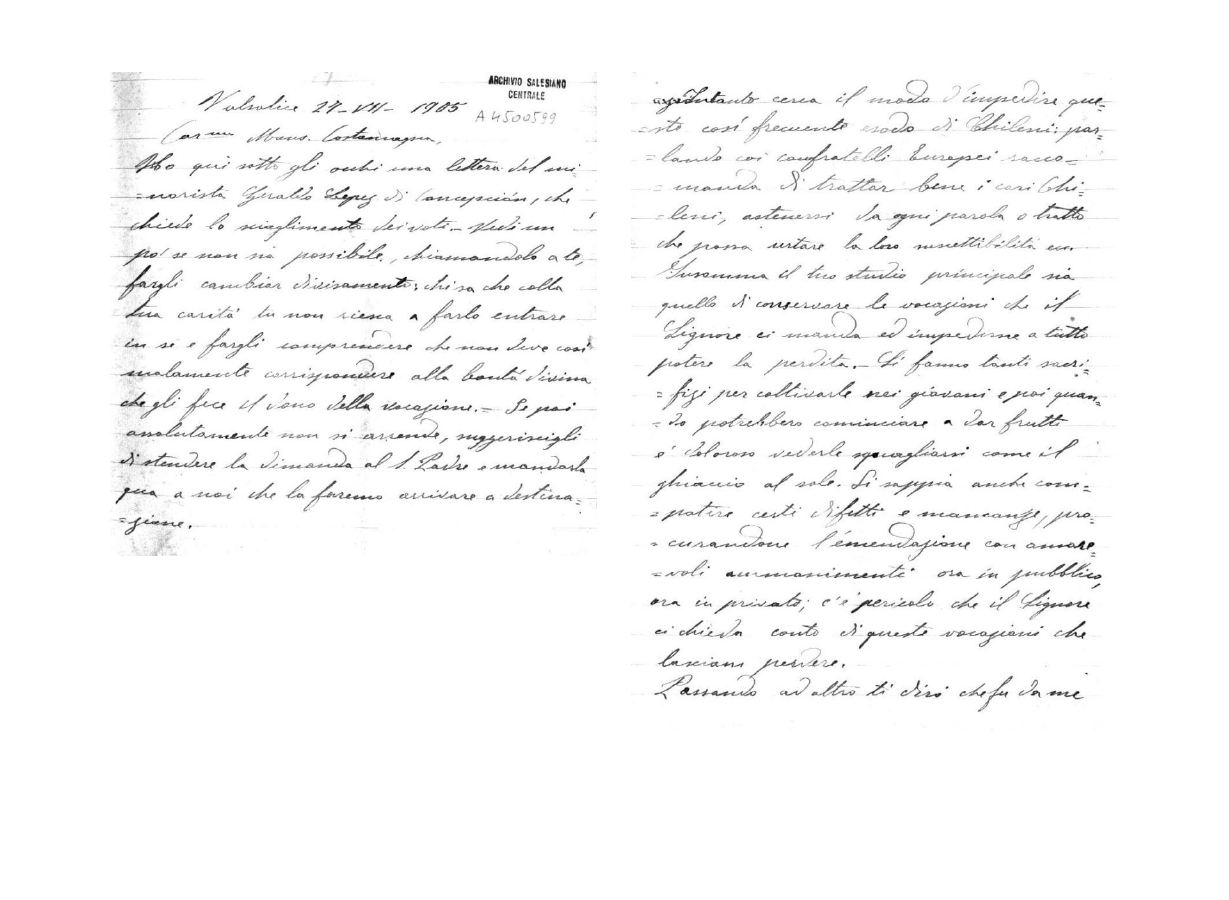 ARCHIVIO SALESIANO
CENTRALE
A4500599
Valsalice 27-VII- 1905
Car.mo Mons. Costamagna,
Ho qui sotto gli occhi una lettera del mi=
=norista Geraldo Lopez di Concepción, che
chiede lo scioglimento dei voti. - Vedi un
po' se non sia possibile, chiamandolo a te,
fargli cambiar divisamento: chi sa che colla
tua carità tu non riesca a farlo entrare
in sé e fargli comprendere che non deve così
malamente corrispondere alla bontà divina
che gli fece il dono della vocazione. = Se poi
assolutamente non si arrende, suggeriscigli
di stendere la dimanda al S. Padre e mandarla
qua a noi che la faremo arrivare a destina=
=zione.
Intanto cerca il modo d'impedire que=
=sto così frequente esodo di Chileni: par=
=lando coi confratelli Europei racco=
=manda di trattar bene i cari Chi=
=leni, astenersi da ogni parola o tratto
che possa urtare la loro suscettibilità ecc.
Insomma il tuo studio principale sia
quello di conservare le vocazioni che il
Signore ci manda ed impedirne a tutto
potere la perdita. - Si fanno tanti sacri=
=fizi per coltivarle nei giovani e poi quan=
=do potrebbero cominciare a dar frutti
è doloroso vederle squagliarsi come il
ghiaccio al sole. Si sappia anche com=
=patire certi difetti e mancanze, pro=
=curandone l'emendazione con amore=
=voli ammonimenti ora in pubblico,
ora in privato; c'è pericolo che il Signore
ci chieda conto di queste vocazioni che
lasciam perdere.
Passando ad altro ti dirò che fu da me